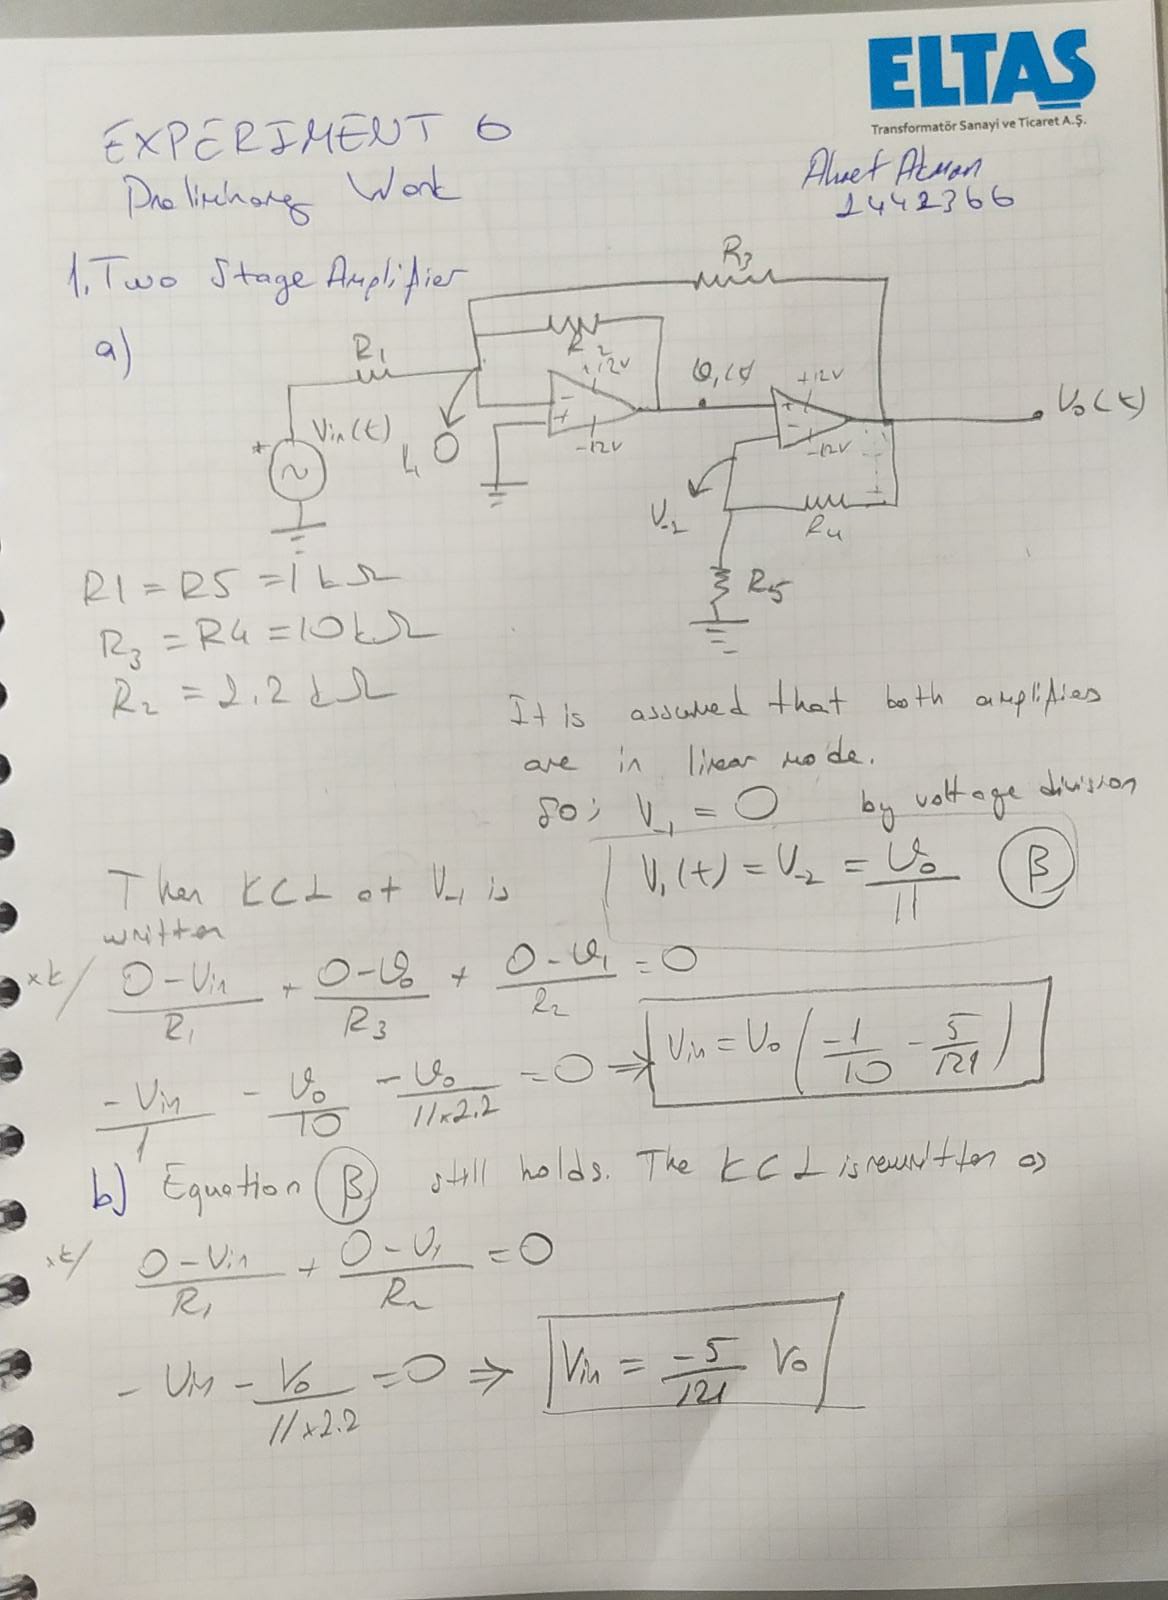 ELTAŞ
Transformatör Sanayi ve Ticaret A.Ş.
EXPERIMENT 6
Preliminary Work
Ahmet Akman
2442366
1. Two Stage Amplifier
a)
R3
R1
R2
+12V
-12V
Vin(t)
0
V1(t)
+12V
-12V
Vo(t)
V-2
R4
R5
R1 = R5 = 1kΩ
R3 = R4 = 10kΩ
R2 = 2.2kΩ
It is assumed that both amplifies
are in linear mode.
So; V-1 = 0 by voltage division
V1(t) = V-2 = Vo/11 β
Then KCL at V-1 is
written
xk/ (0-Vin)/R1 + (0-Vo)/R3 + (0-V1)/R2 = 0
-Vin/1 - Vo/10 - Vo/(11x2.2) = 0 ⇒ Vin = Vo (-1/10 - 5/121)
b) Equation β still holds. The KCL is rewritten as
xk/ (0-Vin)/R1 + (0-V1)/R2 = 0
-Vin - Vo/(11x2.2) = 0 ⇒ Vin = -5/121 Vo